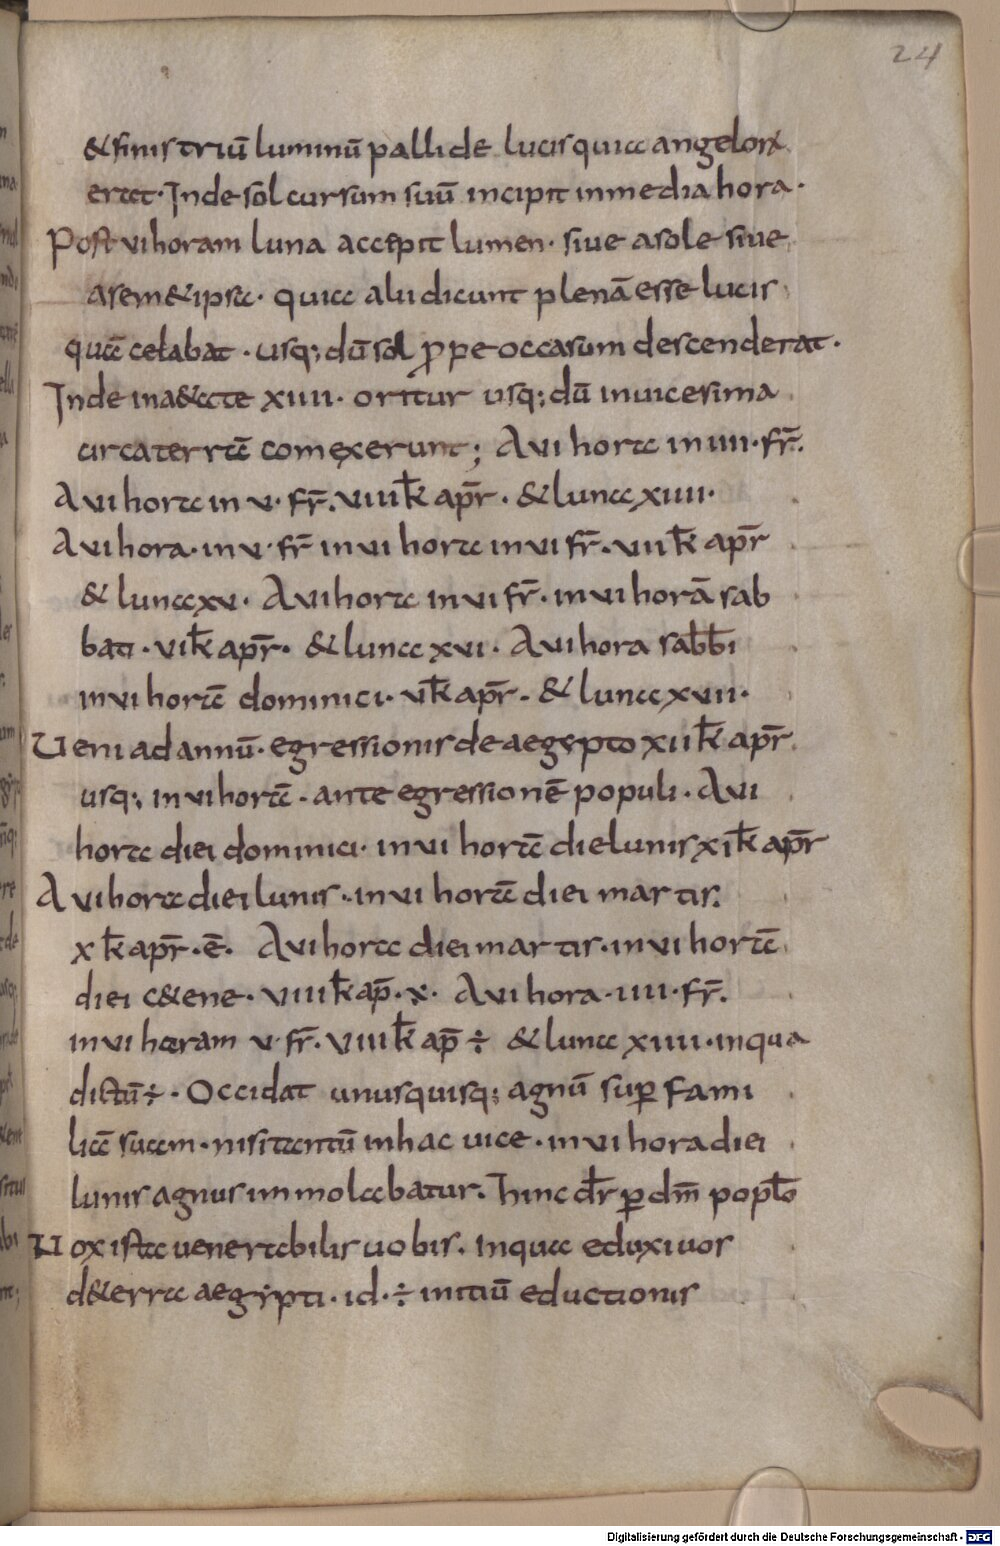 24
& finis triū luminū pallide lucis quia angeloꝝ
erat. Inde sol cursum suū incipit in media hora.
Post vi horam luna accepit lumen. siue a sole siue
a sem&ipsa. quia alii dicunt plenā esse lucis
quā celabat. usq; dū sol ꝓpe occasum descenderat.
Inde in a&ate xiiii. oritur usq; dū in uicesima
circa terrā com exerunt; A vi hora in iiii. fr̄.
A vi hora in v. fr̄. viiii k̄ apr̄. & luna xiiii.
A vi hora. in v. fr̄ in vi hora in vi fr̄. viii k̄ apr̄
& luna xv. A vi hora in vi fr̄. in vi horā sab
bati. vi k̄ apr̄. & luna xvi. A vi hora sab̄b̄i
in vi horā dominici. v k̄ apr̄. & luna xvii.
Ueni ad annū. egressionis de aegypto xii k̄ apr̄
usq; in vi horā. ante egressionē populi. A vi
hora diei dominici. in vi horā die lunis xi k̄ apr̄
A vi hora diei lunis. in vi horā diei martis.
x k̄ apr̄. ē. A vi hora diei martis. in vi horā
diei c&ene. viiii k̄ ap̄. x. A vi hora. iiii. fr̄.
in vi horam v. fr̄. viiii k̄ ap̄ ÷ & luna xiiii. in qua
dictū ÷. Occidat unusquisq; agnū suꝑ fami
liā suam. nisi tantū in hac uice. in vi hora diei
lunis agnus immolabatur. hinc dr̄ ꝑ dm̄ popło
Uox ista uenerabilis uobis. in qua eduxi uos
d& erra aegypti. id. ÷ initiū eductionis
Digitalisierung gefördert durch die Deutsche Forschungsgemeinschaft - DFG